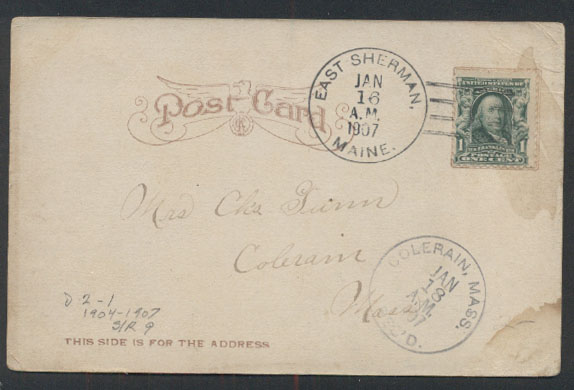 Post Card
EAST SHERMAN,
JAN
16
A.M.
1907
MAINE.
UNITED STATES OF AMERICA
FRANKLIN
1 POSTAGE 1
ONE CENT
Mrs Chs Dunn
Colerain
Mass
COLERAIN, MASS.
JAN
18
A.M.
'07
REC'D.
D 2-1
1904-1907
S/R 9
THIS SIDE IS FOR THE ADDRESS